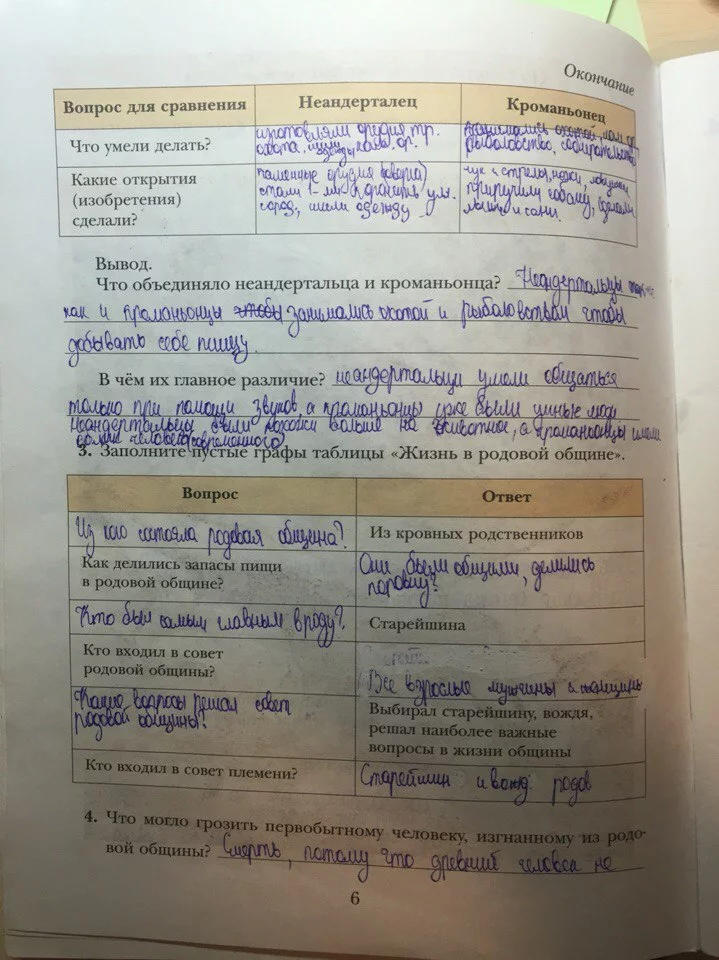 Окончание
Вопрос для сравнения
Неандерталец
Кроманьонец
Что умели делать?
изготовляли орудия тр.
охота,
занимались охотой,
рыболовство, собирательство
Какие открытия
(изобретения)
сделали?
каменные орудия
стали 1-ми хоронить
одежду
лук и стрелы,
приручили собаку, сделали
лыжи и сани.
Вывод.
Что объединяло неандертальца и кроманьонца? Неандертальцы
как и кроманьонцы чтобы занимались охотой и рыболовством чтобы
добывать себе пищу.
В чём их главное различие? неандертальци умели общаться
только при помощи звуков, а кроманьонцы уже были умные люди
Неандертальци были похожи больше на животное, а кроманьонцы имели
облик человека (современного)
3. Заполните пустые графы таблицы «Жизнь в родовой общине».
Вопрос
Ответ
Из кого состояла родовая община?
Из кровных родственников
Как делились запасы пищи
в родовой общине?
Они были общими, делились
поровну?
Кто был самым главным в роду?
Старейшина
Кто входил в совет
родовой общины?
Все взрослые мужчины и женщины
Какие вопросы решал совет
родовой общины?
Выбирал старейшину, вождя,
решал наиболее важные
вопросы в жизни общины
Кто входил в совет племени?
Старейшин и вожд родов
4. Что могло грозить первобытному человеку, изгнанному из родо-
вой общины? Смерть, потому что древний человек не
6